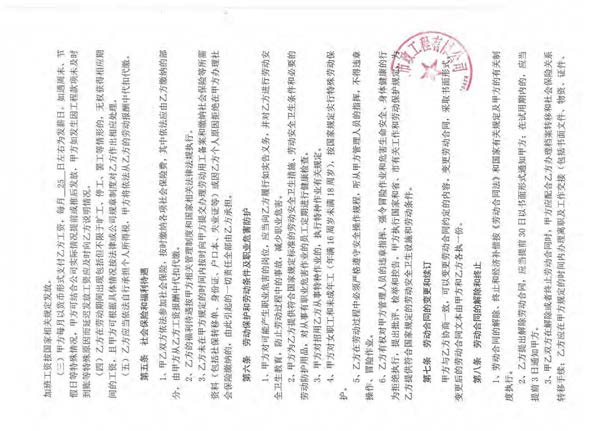 加班工资按国家相关规定发放。
（三）甲方每月以货币形式支付乙方工资，每月 25 日左右为发薪日。如遇周末、节
假日等特殊情况，甲方可结合公司实际情况提前或推后发放。甲方如发生因工程款项未及时
到账等特殊原因而延迟发放工资应及时向乙方说明情况。
（四）乙方在劳动期间出现包括但不限于旷工、停工、罢工等情形的，无权获得相应期
间的工资，且甲方可根据具体情况依法律或公司规章制度对乙方作出相应处理。
（五）乙方应当依法自行承担个人所得税，甲方有权依法从乙方的劳动报酬中代扣代缴。
第五条 社会保险和福利待遇
1、甲乙双方依法参加社会保险，按时缴纳各项社会保险费，其中依法应由乙方缴纳的部
分，由甲方从乙方工资报酬中代扣代缴。
2、乙方的福利待遇按甲方相关管理制度和国家相关法律法规执行。
3、乙方未在甲方规定的时间内按时向甲方提交办理劳动用工备案和缴纳社会保险等所需
资料（包括社保转移单、身份证、户口本、失业证等）或因乙方个人原因拒绝在甲方办理社
会保险缴纳的，由此引起的一切责任全部由乙方承担。
第六条 劳动保护和劳动条件及职业危害防护
1、甲方对可能产生职业危害的岗位，应当向乙方履行如实告知义务，并对乙方进行劳动安
全卫生教育，防止劳动过程中的事故，减少职业危害。
2、甲方为乙方提供符合国家规定标准的劳动安全卫生措施、劳动安全卫生条件和必要的
劳动防护用品，对从事有职业危害作业的员工定期进行健康检查。
3、甲方对招用乙方从事特种作业的，执行特种作业有关规定。
4、甲方对女职工和未成年工（年满 16 周岁未满 18 周岁），按国家规定实行特殊劳动保
护。
5、乙方在劳动过程中必须严格遵守安全操作规程，听从甲方管理人员的指挥，不得违章
操作、冒险作业。
6、乙方有权对甲方管理人员的违章指挥、强令冒险作业和危害生命安全、身体健康的行
为拒绝执行，提出批评、检举和控告。甲方执行国家和省、市有关工作和劳动保护规定，为
乙方提供符合国家规定的劳动安全卫生设施和劳动条件。
第七条 劳动合同的变更和续订
甲方与乙方协商一致，可以变更劳动合同约定的内容，变更劳动合同，采取书面形式，
变更后的劳动合同文本由甲方和乙方各执一份。
第八条 劳动合同的解除和终止
1、劳动合同的解除、终止和经济补偿按《劳动合同法》和国家有关规定及甲方的有关制
度执行。
2、乙方提出解除劳动合同，应当提前 30 日以书面形式通知甲方；在试用期内的，应当
提前 3 日通知甲方。
3、甲乙双方在解除或者终止劳动合同时，甲方应配合乙方办理档案转移和社会保险关系
转移手续；乙方应在甲方规定的时间内办理离职及工作交接（包括书面文件、物资、证件、
市政工程有限公司